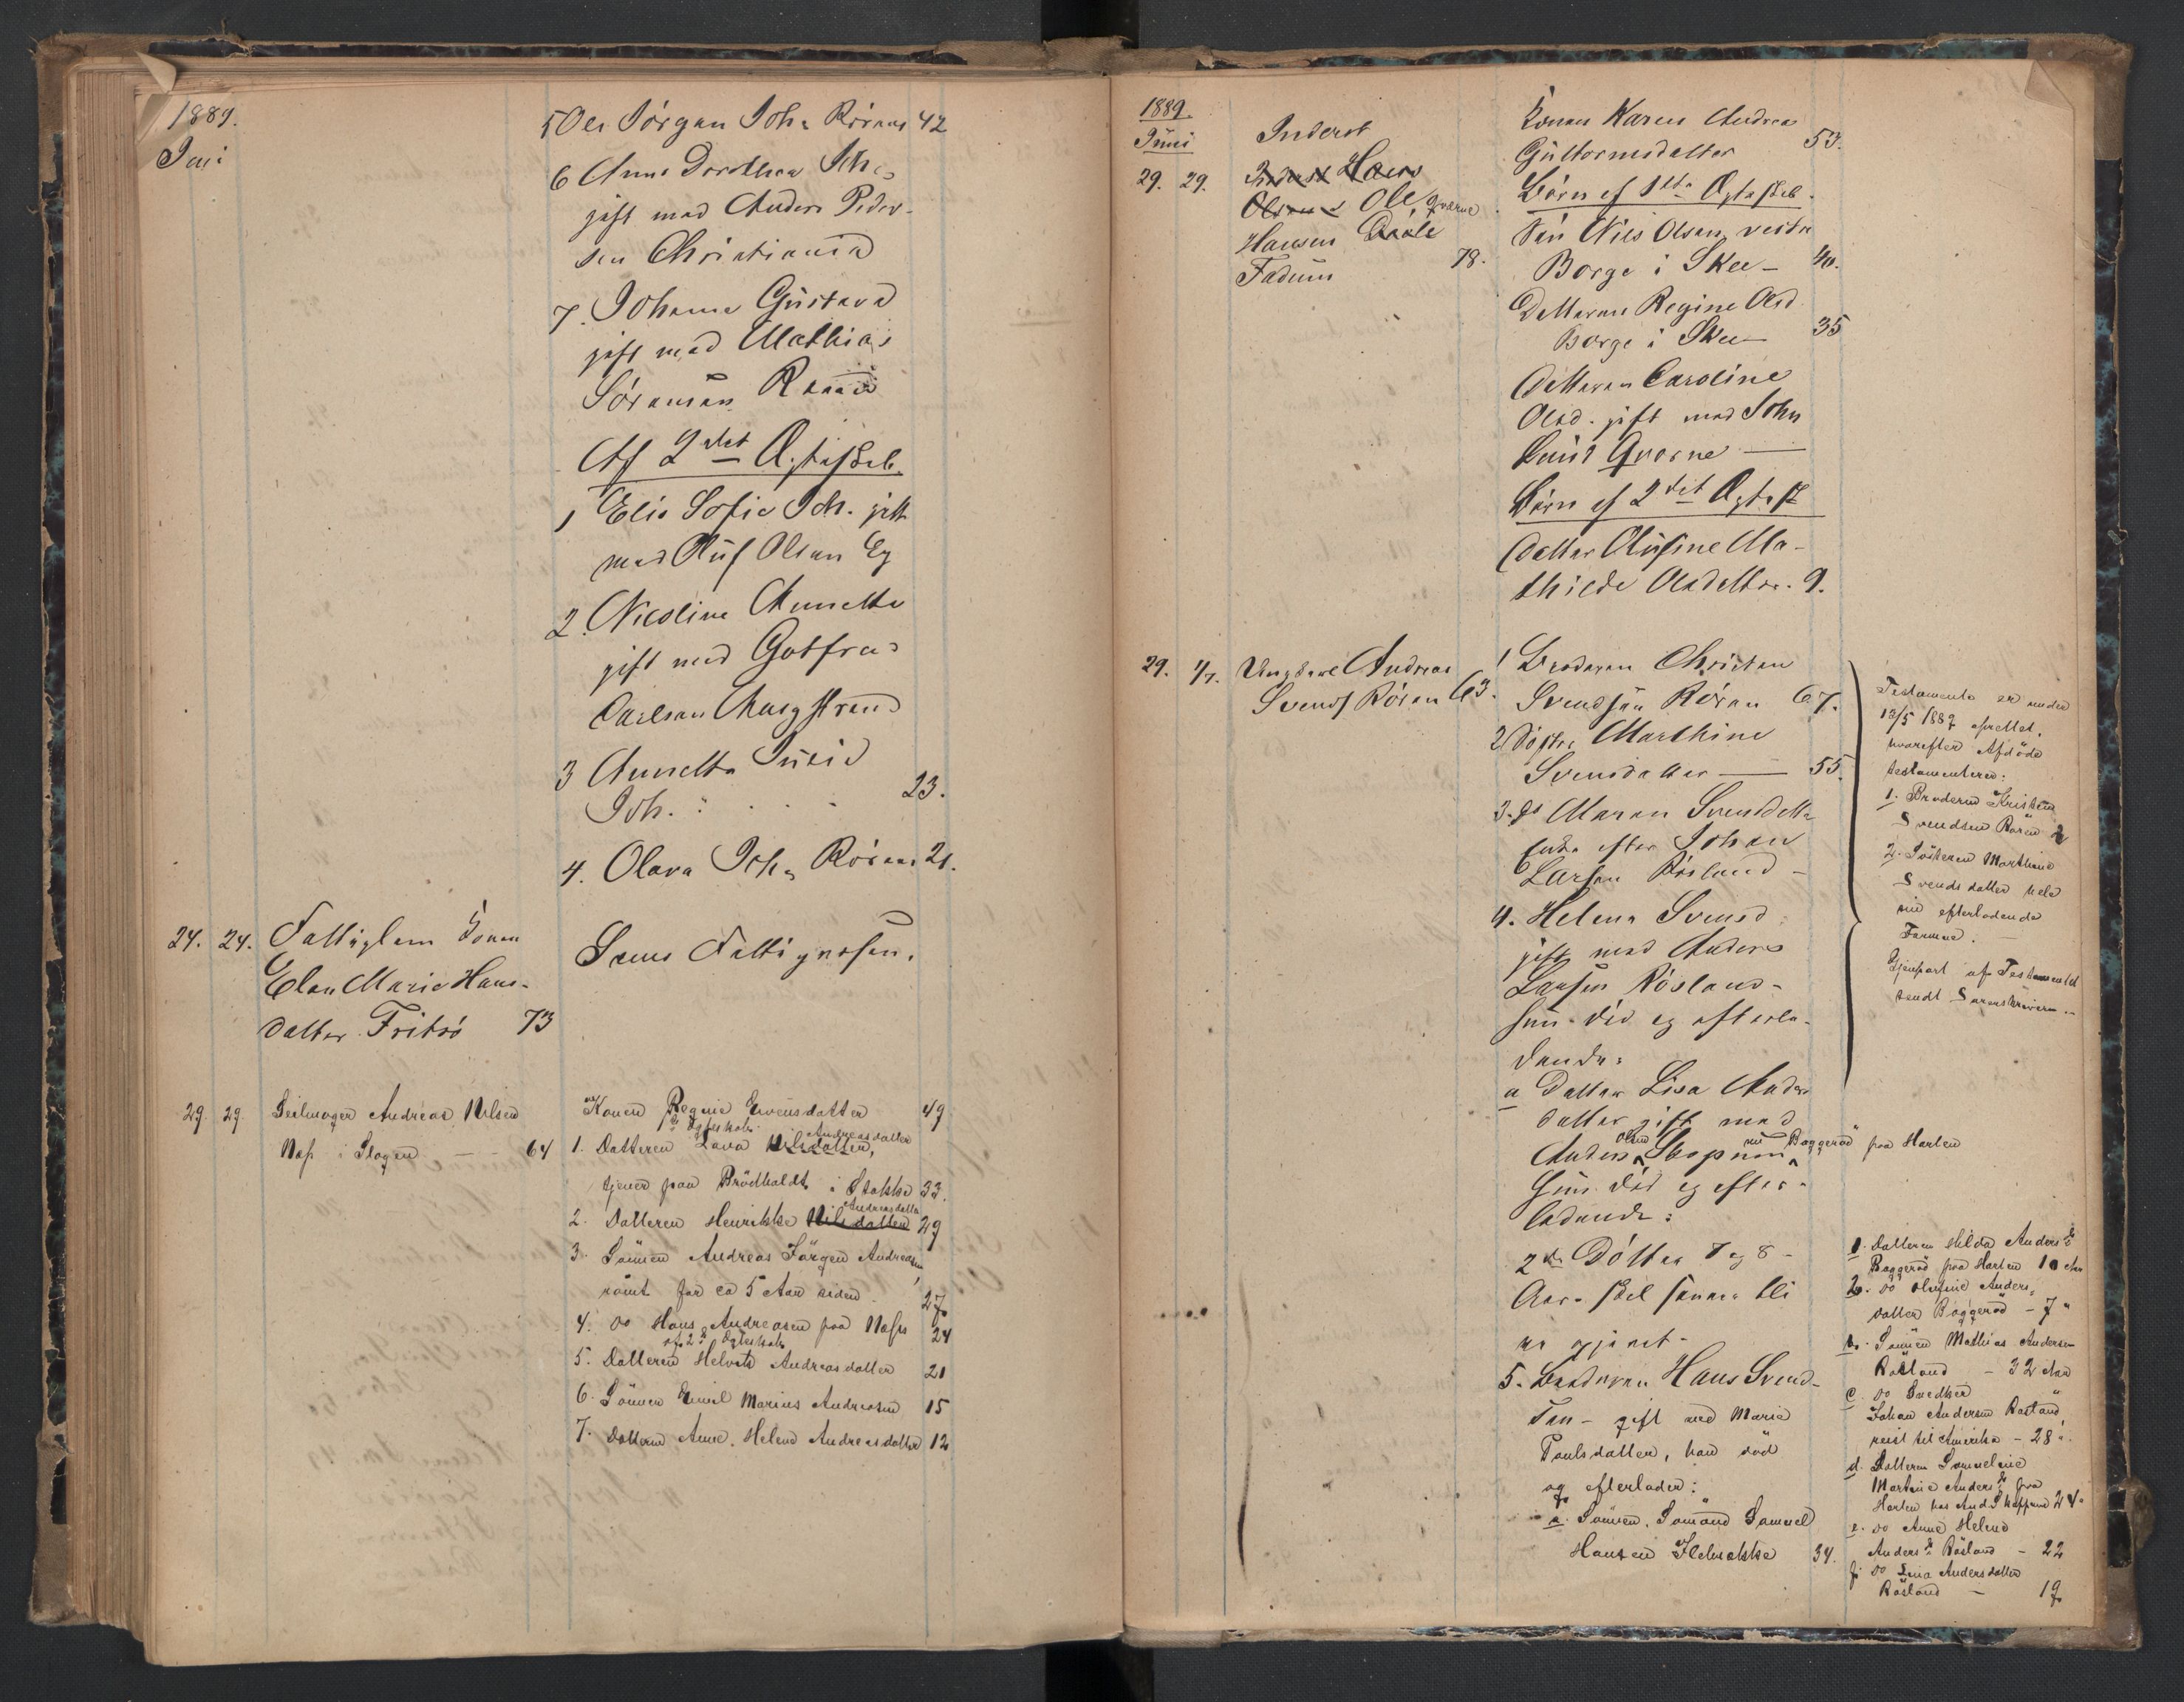 1889.
Juni
5 Ole Jørgen Joh. Röraas 42
6 Anne Dorothea Joh.
gift med Anders Peder-
sen Christiania
7. Johanne Gustava
gift med Mathias
Sörensen
Af 2det Ægteskab.
1 Elis Sofie Joh. gift
med Oluf Olsen Eg
2. Nicoline Annette
gift med Gotfred
Carlsen
3 Annette
Joh. 23.
4. Olava Joh. Röraas 21.
24. 24. Fattiglem Konen
Elen Marie Hans-
datter Fritsö 73
Sems Fattigvæsen.
29 29 Seilmager Andreas Nilsen
Næs i Slagen — 64
Konen Regine Evensdatter 49
Ægteskab.
1. Datteren Lava Nilsdatter, Andreasdatter
tjener paa Brödholdt i Stokke 33.
2. Datteren Henrikke Nilsdatter Andreasdatter 29
3. Sønnen Andreas Jørgen Andreasen
römt for ca 5 Aar siden 27
4. do Hans Andreasen paa Næs 24
af 2. Ægteskab
5. Datteren Andreasdatter 21
6. Sønnen Emil Marius Andreasen 15
7. Datteren Anne Helene Andreasdatter 12
1889.
Juni
29. 29. Inderst
Inderst Hans
Olsen Ole Qværne
Hansen
Fadum 78.
Konen Karen Andrea
Guttormsdatter 53.
Børn af 1ste Ægteskab.
Søn Nils Olsen vestre
Borge i Skee — 40.
Datteren Regine Olsd.
Borge i Skee — 35
Datteren Caroline
Olsd. gift med John
Knut Qværne —
Børn af 2det Ægtesk
Datter Olufine Ma-
thilde Olsdatter. 9.
29. 1/7. Ungkarl Andreas
Svends. Rören 63.
1 Broderen Christen
Svendsen Rören 67.
2 Søster Marthine
Svensdatter — 55.
3. do Maren Svensdatter
Enke efter Johan
Larsen Rösland —
4. Helene Svensd.
gift med Anders
Larsen Rösland —
hun død og efterla-
dende:
a Datter Lisa Anders-
datter gift med
Anders Olsen Skoprum nu Baggeröd paa Horten
hun død og efter-
ladende:
2de Døttre 7 og 8 —
Aar —
5. Broderen Hans Svend-
sen — gift med Marie
Paulsdatter, han død
og efterlader:
a. Sønnen, Sømand Samuel
Hansen 34.
Testamente er under
13/5 1887 oprettet,
hvorefter Afdöde
testamenterer:
1. Broderen Kristen
Svendsen Rören &
2. Søsteren Marthine
Svendsdatter hele
sin efterladende
Formue. —
Gjenpart af Testamentet
sendt Sorenskriveren. —
1. Datteren Hilda Andersdr
Baggeröd paa Horten 10 Aar
2. do Olufine Anders-
datter Baggeröd — 7 "
b. Sønnen Mathias Andersen
Rösland — 32 Aar
c. do Snedker
Johan Andersen Rösland,
reist til Amerika — 28 "
d. Datteren
Martine Andersdr paa
Horten hos And. Skoprum 24 "
e. do Anne Helene
Andersdr Rösland — 22
f. do Lina Andersdatter
Rösland — 19